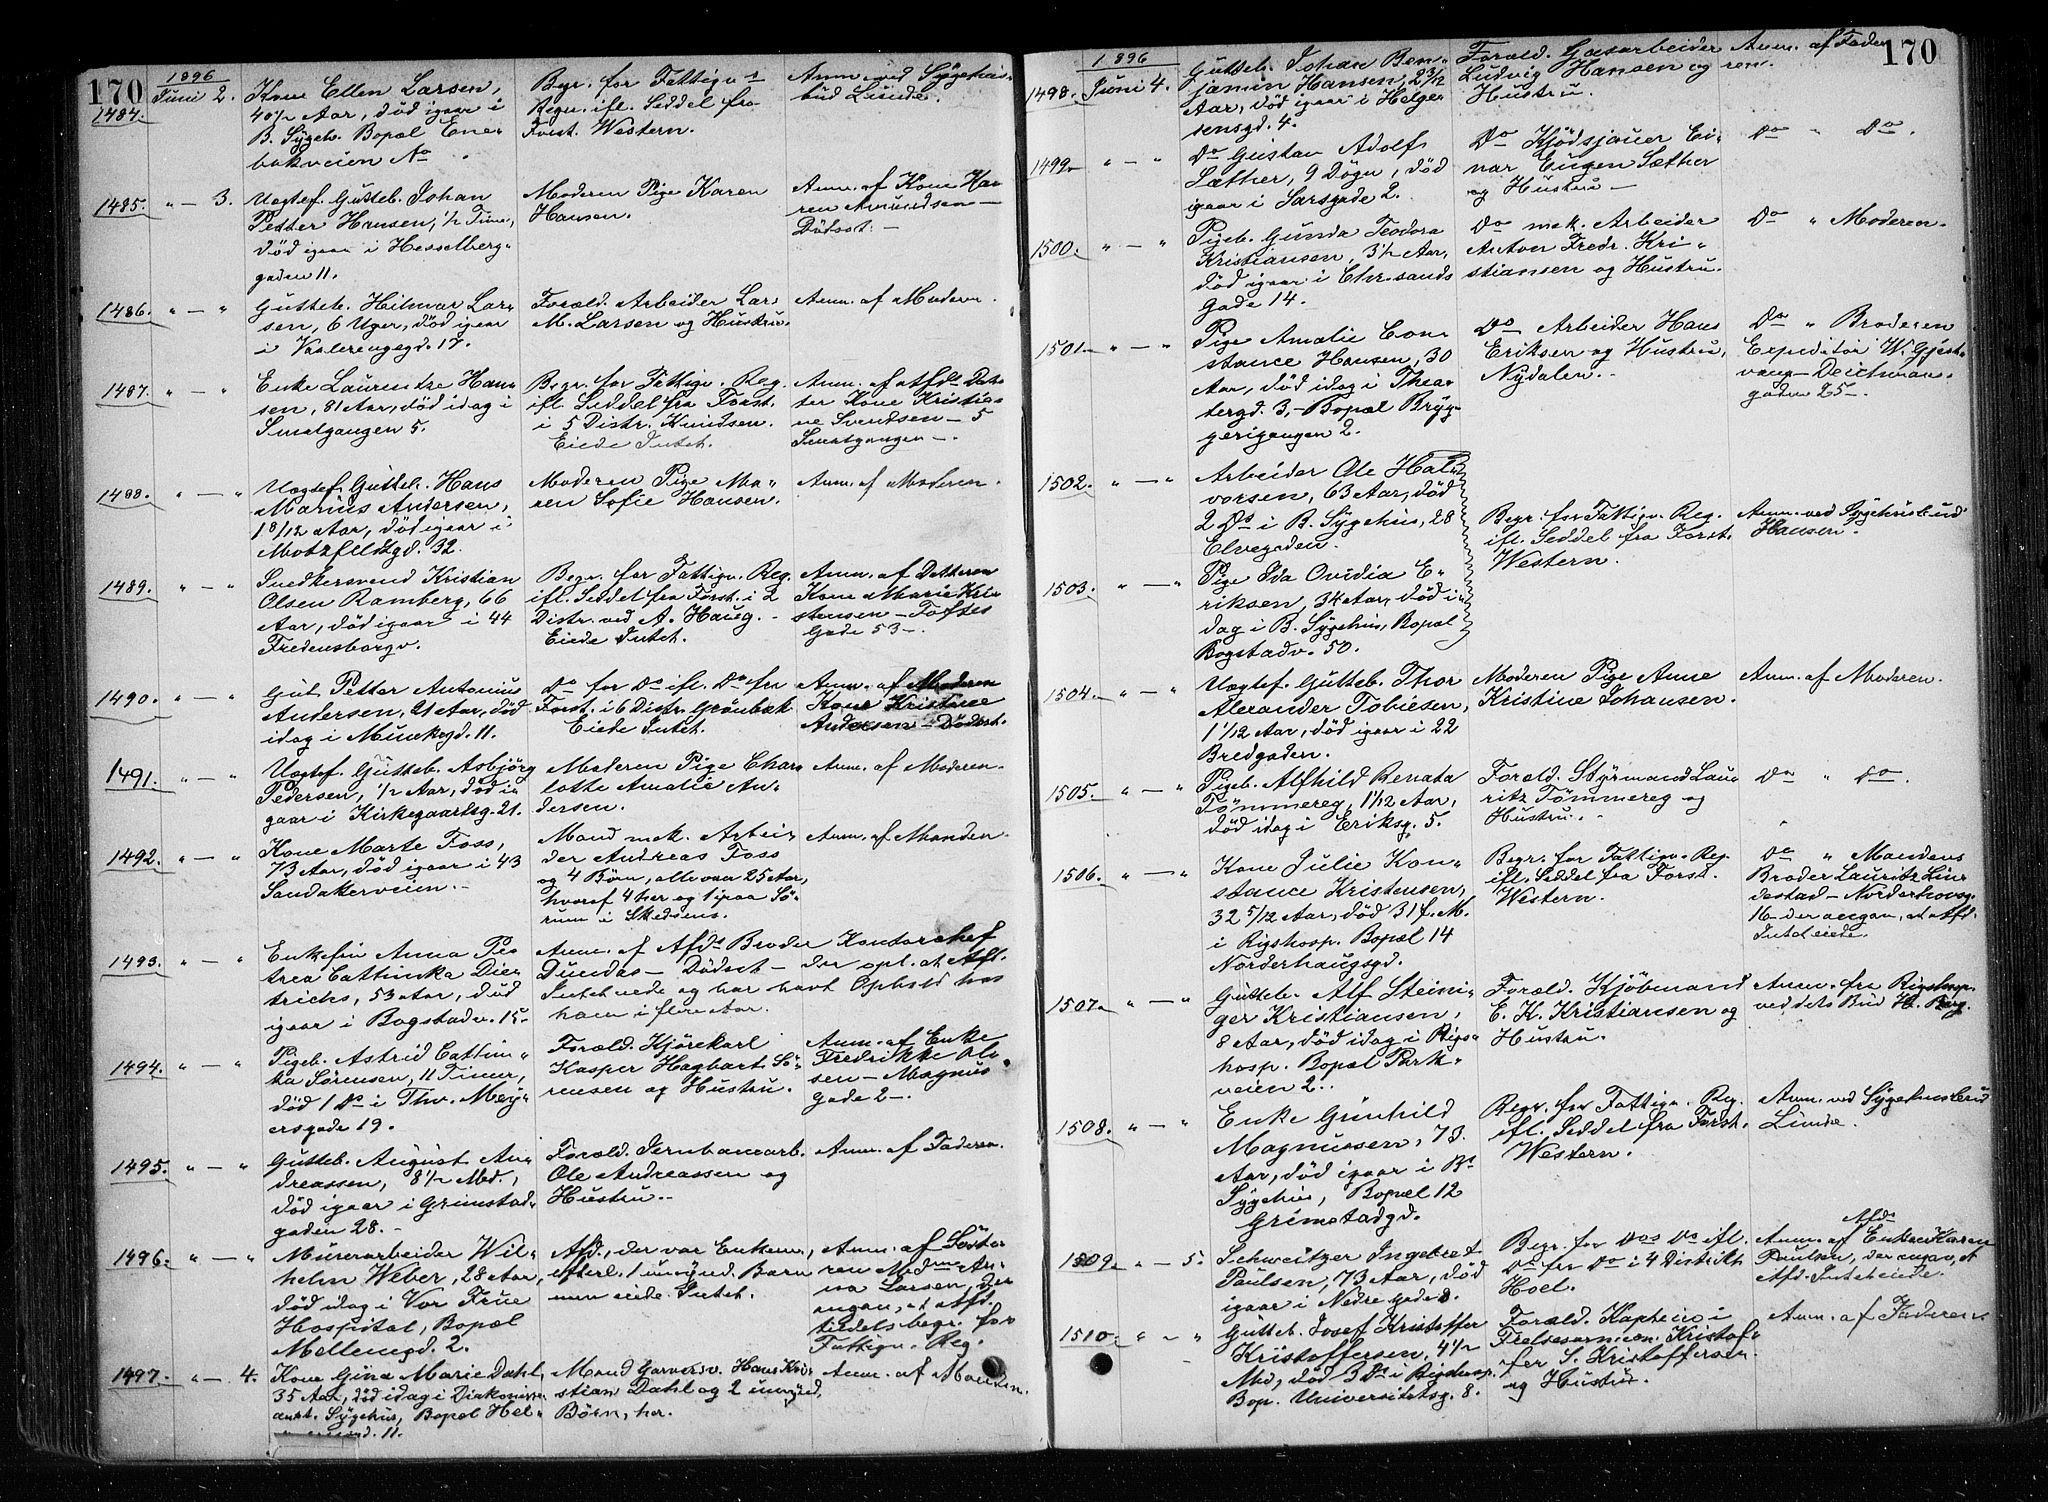 170
1896
1484.
Juni 2.
Kone Ellen Larsen,
40 1/2 Aar, död igaar i
B. Sygeh. Bopæl Ene-
bakveien No .
Begr. for Fattigv.s
Regn. ifl. Seddel fra
Forst. Western.
Anm. ved Sygehus-
bud Lunde.
1485.
" — 3.
Uægtef. Gutteb. Johan
Petter Hansen, 1/2 Time,
död igaar i Hesselberg-
gaden 11.
Moderen Pige Karen
Hansen.
Anm. af Kone Ka-
ren Amundsen —
Dödsst. —
1486.
" — "
Gutteb. Hilmar Lar-
sen, 6 Uger, död igaar
i Vaalerengegd. 17.
Foræld. Arbeider Lar-
M. Larsen og Hustru.
Anm. af Moderen.
1487.
" — "
Enke Laurentze Han-
sen, 81 Aar, död idag i
Smalgangen 5.
Begr. for Fattigv. Reg.
ifl. Seddel fra Forst.
i 5 Distr. Knudsen.
Eiede Intet.
Anm. af Afdes Dat-
ter Kone Kristia-
ne Svendsen — 5
Smalgangen —.
1488.
" — "
Uægtef. Gutteb. Hans
Marius Andersen,
1 8/12 Aar, död igaar i
Motzfeldtgd. 32.
Moderen Pige Ma-
ren Sofie Hansen.
Anm. af Moderen.
1489.
" — "
Snedkersvend Kristian
Olsen Ramberg, 66
Aar, död igaar i 44
Fredensborgv.
Begr. for Fattigv. Reg.
ifl. Seddel fra Forst. i 2
Distr. ved A. Haug. -
Eiede Intet.
Anm. af Datteren
Kone Marie Kri-
stensen — Toftes
Gade 53 —.
1490.
" — "
Gut Petter Antonius
Andersen, 21 Aar, död
idag i Munkegd. 11.
Do for Do ifl. Do fra
Forst. i 6 Distr. Grönbæk
Eiede Intet.
Anm. af Moderen
Kone Kristine
Andersen — Dödsst.
1491.
" — "
Uægtef. Gutteb. Asbjörg
Pedersen, 1/2 Aar, död i-
gaar i Kirkegaardsg. 21.
Moderen Pige Char-
lotte Amalie An-
dersen.
Anm. af Moderen.
1492.
" — "
Kone Marte Foss,
73 Aar, död igaar i 43
Sandakerveien. —
Mand mek. Arbei-
der Andreas Foss
og 4 Börn, alle over 25 Aar,
hvoraf 4 her og 1 paa Sö-
rum i Skedsmo.
Anm. af Manden.
1493.
" — "
Enkefru Anna Pe-
trea Cattinka Die-
trichs, 53 Aar, död
igaar i Bogstadv. 15.
Anm. af Afdes Broder Kontorchef
Dundas — Dödsst — der opl. at Afd.
Intet eiede og har havt Ophold hos
ham i flere Aar.
1494.
" — "
Pigeb. Astrid Cattin-
ka Sörensen, 11 Timer,
död 1 Ds i Thv. Mey-
ersgade 19.
Foræld. Kjörekarl
Kasper Hagbart Sö-
rensen og Hustru.
Anm. af Enke
Fredrikke Ol-
sen — Magnus
Gade 2 —.
1495.
" — "
Gutteb. August An-
dreassen, 8 1/2 Md.,
död igaar i Grimstad-
gaden 28. —
Foræld. Jernbanearb.
Ole Andreassen og
Hustru. —
Anm. af Faderen.
1496.
" — "
Murerarbeider Wil-
helm Weber, 28 Aar,
död idag i Vor Frue
Hospital, Bopæl
Möllergd. 2.
Afd., der var Enkem.,
efterl. 1 umynd. Barn
men eiede Intet.
Anm. af Södte-
ren Mdme An-
na Larsen, der
angav, at Afd.
tiltdels begr. for
Fattigv. Reg.
1497.
" — 4.
Kone Gina Marie Dahl,
35 Aar, död idag i Diakonisse-
anst. Sygehus, Bopæl Hel-
gd. 11.
Mand Garversv. Hans Kri-
stian Dahl og 2 umynd.
Börn, her.
Anm. af Manden.
170
1896
1498.
Juni 4.
Gutteb. Johan Ben-
jamin Hansen, 2 3/12
Aar, död igaar i Helge-
sensgd. 4.
Foræld. Gasarbeider
Ludvig Hansen og
Hustru.
Anm. af Fade-
ren.
1499
" — "
Do Gustav Adolf
Sæther, 9 Dögn, död
igaar i Sarsgade 2.
Do Kjödsjouer Ei-
nar Eugen Sæther
og Hustru —
Do " Do.
1500.
" — "
Pigeb. Gunda Teodora
Kristiansen, 3 1/2 Aar,
död igaar i Chr.sands
Gade 14.
Do mek. Arbeider
Anton Fredr. Kri-
stiansen og Hustru.
Do " Moderen.
1501.
" — "
Pige Amalie Con-
stance Hansen, 30
Aar, död idag i Thea-
tergd. 3, - Bopæl Bryg-
gerigangen 2.
Do Arbeider Hans
Eriksen og Hustru,
Nydalen. -
Do " Broderen
Expeditör W. Gjest-
vang — Deichman-
gaden 25 —.
1502.
" — "
Arbeider Ole Hal-
vorsen, 63 Aar, död
2 Ds i B. Sygehus, 28
Elvegaden.
Begr. for Fattigv. Reg.
ifl. Seddel fra Forst.
Western.
Anm. ved Sygehusbud
Hansen.
1503.
" — "
Pige Ida Ovidia E-
riksen, 34 Aar, död i-
dag i B. Sygehus, Bopæl
Bogstadv. 50.
1504.
" — "
Uægtef. Gutteb. Thor
Alexander Tobiesen,
1 1/12 Aar, död igaar i 22
Bredgaden.
Moderen Pige Anne
Kristine Johansen.
Anm. af Moderen.
1505.
" — "
Pigeb. Alfhild Renata
Tömmereg, 1 1/12 Aar,
död idag i Eriksg. 5.
Foræld. Styrmand Lau-
ritz Tömmereg og
Hustru.
Do " Do.
1506.
" — "
Kone Julie Kon-
stance Kristensen,
32 5/12 Aar, död 31 f. M.
i Rigshosp. Bopæl 14
Norderhaugsgd.
Begr. for Fattigv. Reg.
ifl. Seddel fra Forst.
Western.
Do " Mandens
Broder Lauritz Lin-
destad — Norderhovsg.
16 — der angav, at Afd.
Intet eiede.
1507.
" — "
Gutteb. Alf Steini-
ger Kristiansen,
8 Aar, död idag i Rigs-
hosp. Bopæl Park-
veien 2.
Foræld. Kjöbmand
E. K. Kristiansen og
Hustru.
Anm. fra Rigshosp.
ved dets Bud H. Berg.
1508.
" — "
Enke Gunhild
Magnussen, 73
Aar, död igaar i Bs
Sygehus, Bopæl 12
Grimstadgd.
Begr. for Fattigv. Reg.
ifl. Seddel fra Forst.
Western.
Anm. ved Sygehusbud
Lunde.
1509.
" — 5.
Schweitzer Ingebret
Paulsen, 73 Aar, död
igaar i Nedre Gade 8.
Begr. for Dos Do ifl.
Do fra Do i 4 Distrikt
Hoel.
Afds
Anm. af Enke Karen
Paulsen, der angav, at
Afd. Intet eiede.
1510.
" — "
Gutteb. Josef Kristoffer
Kristoffersen, 4 1/2
Md, död 3 Ds i Rigshosp.
Bop. Universitetsg. 8.
Foræld. Kaptein i
Frelsesarmeen Kristof-
fer S. Kristoffersen
og Hustru.
Anm. af Faderen